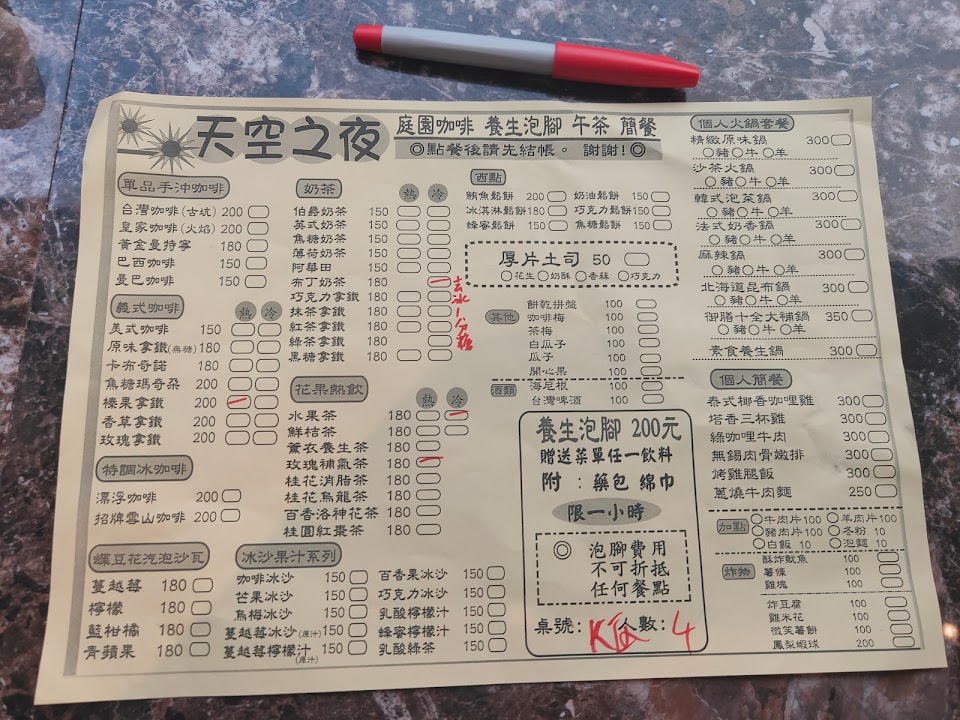 天空之夜
庭園咖啡 養生泡腳 午茶 簡餐
◎點餐後請先結帳。 謝謝!◎
單品手沖咖啡
台灣咖啡(古坑) 200
皇家咖啡(火焰) 200
黃金曼特寧 180
巴西咖啡 150
曼巴咖啡 150
義式咖啡 熱 冷
美式咖啡 150
原味拿鐵(無糖) 180
卡布奇諾 180
焦糖瑪奇朵 200
榛果拿鐵 200
香草拿鐵 200
玫瑰拿鐵 200
特調冰咖啡
漂浮咖啡 200
招牌雪山咖啡 200
蝶豆花汽泡沙瓦
蔓越莓 180
檸檬 180
藍柑橘 180
青蘋果 180
奶茶 熱 冷
伯爵奶茶 150
英式奶茶 150
焦糖奶茶 150
薄荷奶茶 150
阿華田 150
布丁奶茶 180
去冰1分糖
巧克力拿鐵 180
抹茶拿鐵 180
紅茶拿鐵 180
綠茶拿鐵 180
黑糖拿鐵 180
花果熱飲 熱 冷
水果茶 180
鮮桔茶 180
薰衣養生茶 180
玫瑰補氣茶 180
桂花消脂茶 180
桂花烏龍茶 180
百香洛神花茶 180
桂圓紅棗茶 180
冰沙果汁系列
咖啡冰沙 150
芒果冰沙 150
烏梅冰沙 150
蔓越莓冰沙(原汁) 150
蔓越莓檸檬汁(原汁) 150
百香果冰沙 150
巧克力冰沙 150
乳酸檸檬汁 150
蜂蜜檸檬汁 150
乳酸綠茶 150
西點
鮪魚鬆餅 200 奶油鬆餅 150
冰淇淋鬆餅 180 巧克力鬆餅 150
蜂蜜鬆餅 150 焦糖鬆餅 150
厚片土司 50
花生 奶酥 香蒜 巧克力
其他
餅乾拼盤 100
咖啡梅 100
茶梅 100
白瓜子 100
瓜子 100
開心果 100
酒類
海尼根 100
台灣啤酒 100
養生泡腳 200元
贈送菜單任一飲料
附 : 藥包 綿巾
限一小時
◎ 泡腳費用
不可折抵
任何餐點
桌號: 人數: 4
個人火鍋套餐
精緻原味鍋 300
豬 牛 羊
沙茶火鍋 300
豬 牛 羊
韓式泡菜鍋 300
豬 牛 羊
法式奶香鍋 300
豬 牛 羊
麻辣鍋 300
豬 牛 羊
北海道昆布鍋 300
豬 牛 羊
御膳十全大補鍋 350
豬 牛 羊
素食養生鍋 300
個人簡餐
泰式椰香咖哩雞 300
塔香三杯雞 300
綠咖哩牛肉 300
無錫肉骨嫩排 300
烤雞腿飯 300
蔥燒牛肉麵 250
加點
牛肉片100 羊肉片100
豬肉片100 冬粉 10
白飯 10 泡麵 10
炸物
酥炸魷魚 100
薯條 100
雞塊 100
炸豆腐 100
雞米花 100
微笑薯餅 100
鳳梨蝦球 200